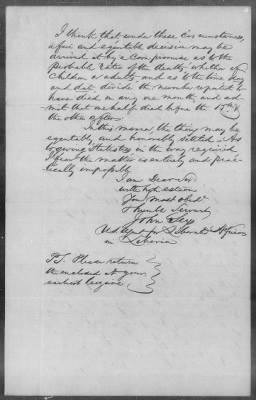 I think that under these circumstances,
a fair and equitable decision may be
arrived at by a Compromise as to the
probable rates of the deaths, whether of
Children or adults, and as to the time
and date, divide the number reported to
have died in any one month, and ad-
mit that one half died before the 15th &
the other after.
In this manner the thing may be
equitably and honorably settled. As
to giving Statistics in the way required
I fear the matter is entirely and prac-
tically impossible
I am Dear Sir
with high esteem
Your most obdt
& humble Servant
John Seys
US Agent for Liberated Africans
in Liberia
P.S. Please return
the enclosed at your
earliest